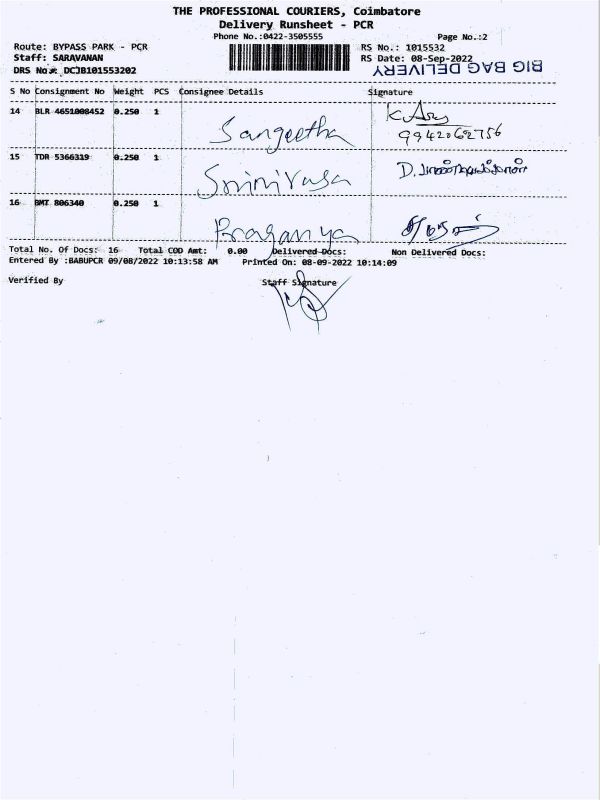 THE PROFESSIONAL COURIERS, Coimbatore
Delivery Runsheet - PCR
Phone No.:0422-3505555 Page No.:2
Route: BYPASS PARK - PCR RS No.: 1015532
Staff: SARAVANAN RS Date: 08-Sep-2022
DRS No DCJB101553202 BIG BAG DELIVERY
S No Consignment No Weight PCS Consignee Details Signature
14 BLR 4651008452 0.250 1 Sangeetha
9942062756
15 TDR 5366319 0.250 1 Srinivasa D.
16 BMT 806340 0.250 1 Praganya
Total No. Of Docs: 16 Total COD Amt: 0.00 Delivered Docs: Non Delivered Docs:
Entered By :BABUPCR 09/08/2022 10:13:58 AM Printed On: 08-09-2022 10:14:09
Verified By Staff Signature